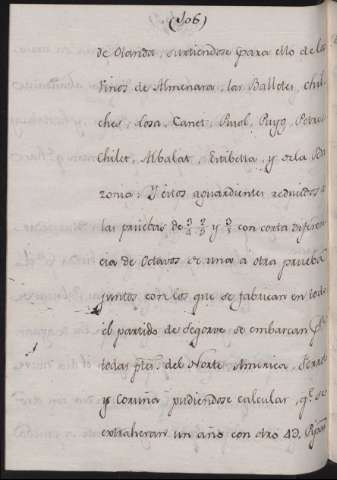 (106)
de Olanda, surtiendose para ello de los
Vinos de Almenara, las Ballotes, Chil-
ches, Losa, Canet, Rusol, Puyg, Petres
Chilet, Albalat, Estibella, y de la Ba-
ronia: Y estos aguardientes reducidos a
las pruebas de 3/4 2/5 y con corta diferen-
cia de Octavos de una a otra prueba
juntos con los que se fabrican en todo
el partido de Segorve se embarcan
todas ptes. del Norte America,
y Coruña pudiendose calcular, qe. se
extraheran un año con otro 4D,